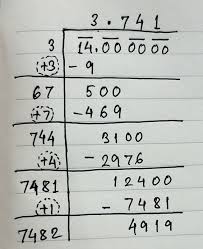 3.741
3 14.00 00 00
+3 -9
67 500
+7 -469
744 3100
+4 -2976
7481 12400
+1 -7481
7482 4919